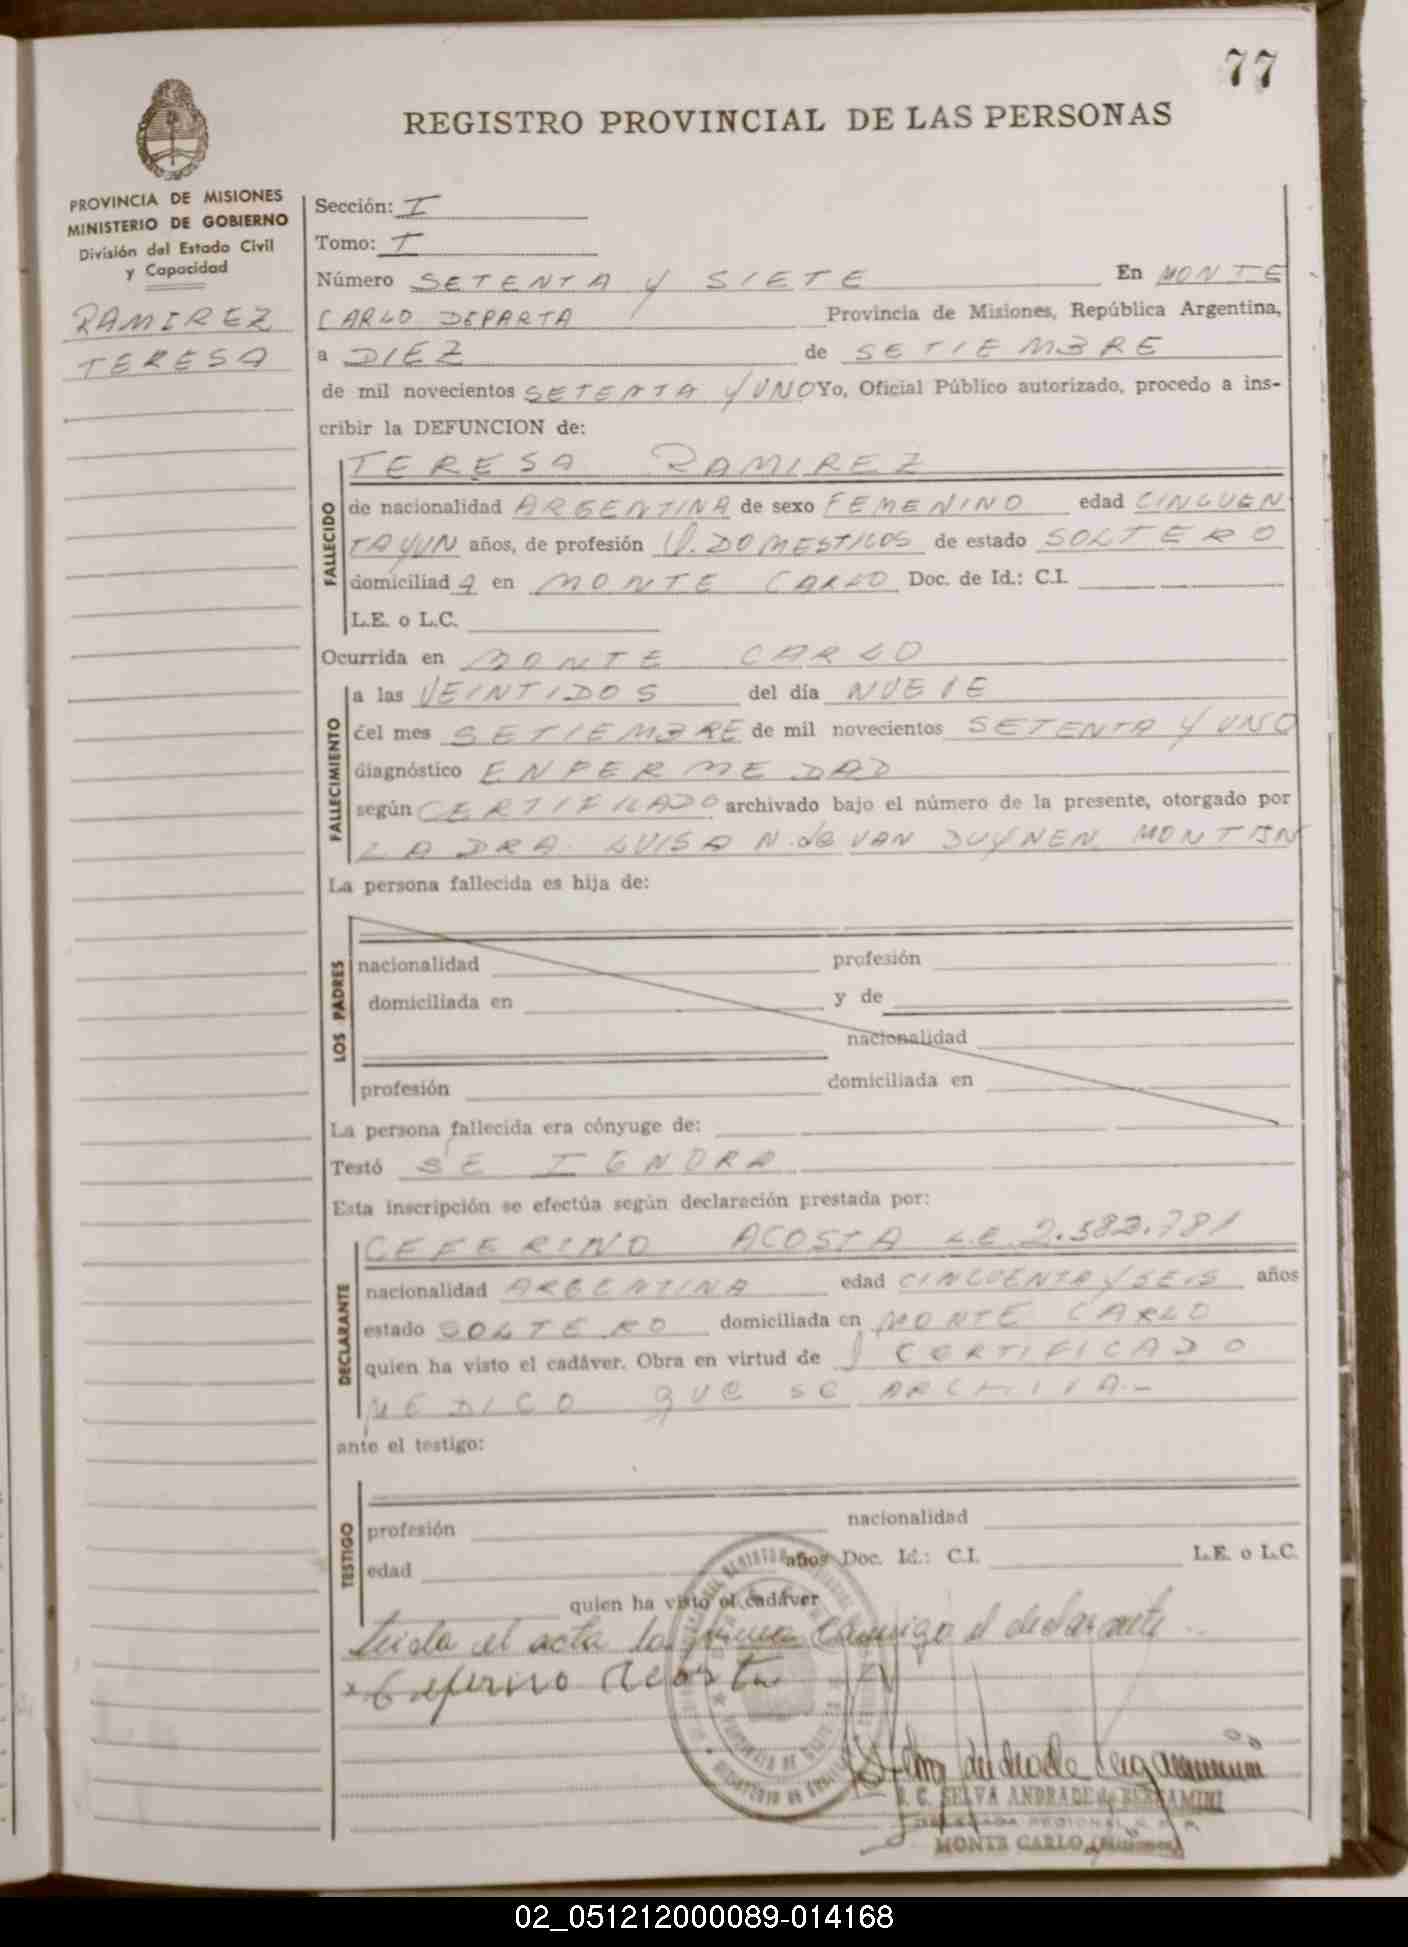 77
REGISTRO PROVINCIAL DE LAS PERSONAS
PROVINCIA DE MISIONES
MINISTERIO DE GOBIERNO
División del Estado Civil
y Capacidad
RAMIREZ
TERESA
Sección: I
Tomo: I
Número SETENTA Y SIETE En MONTE
CARLO DEPARTA Provincia de Misiones, República Argentina,
a DIEZ de SETIEMBRE
de mil novecientos SETENTA Y UNO Yo, Oficial Público autorizado, procedo a ins-
cribir la DEFUNCION de:
TERESA RAMIREZ
FALLECIDO
de nacionalidad ARGENTINA de sexo FEMENINO edad CINCUEN
TAYUN años, de profesión Q. DOMESTICOS de estado SOLTERO
domiciliad a en MONTE CARLO Doc. de Id.: C.I.
L.E. o L.C.
Ocurrida en MONTE CARLO
FALLECIMIENTO
a las VEINTIDOS del día NUEVE
del mes SETIEMBRE de mil novecientos SETENTA Y UNO
diagnóstico ENFERMEDAD
según CERTIFICADO archivado bajo el número de la presente, otorgado por
LA DRA LUISA N. de VAN DUYNEN MONTIJN
La persona fallecida es hija de:
LOS PADRES
nacionalidad profesión
domiciliada en y de
nacionalidad
profesión domiciliada en
La persona fallecida era cónyuge de:
Testó SE IGNORA
Esta inscripción se efectúa según declaración prestada por:
CEFERINO ACOSTA L.E. 2.582.781
DECLARANTE
nacionalidad ARGENTINA edad CINCUENTA Y SEIS años
estado SOLTERO domiciliada en MONTE CARLO
quien ha visto el cadáver. Obra en virtud de CERTIFICADO
MEDICO QUE SE ARCHIVA.-
ante el testigo:
TESTIGO
profesión nacionalidad
edad años Doc. Id.: C.I. L.E. o L.C.
quien ha visto el cadáver
Leida el acta la firma conmigo el declarante
x Ceferino Acosta
Selva Andrade Bergamini
R. C. SELVA ANDRADE de BERGAMINI
DELEGADA REGIONAL R.P.P.
MONTE CARLO (Misiones)
02_051212000089-014168